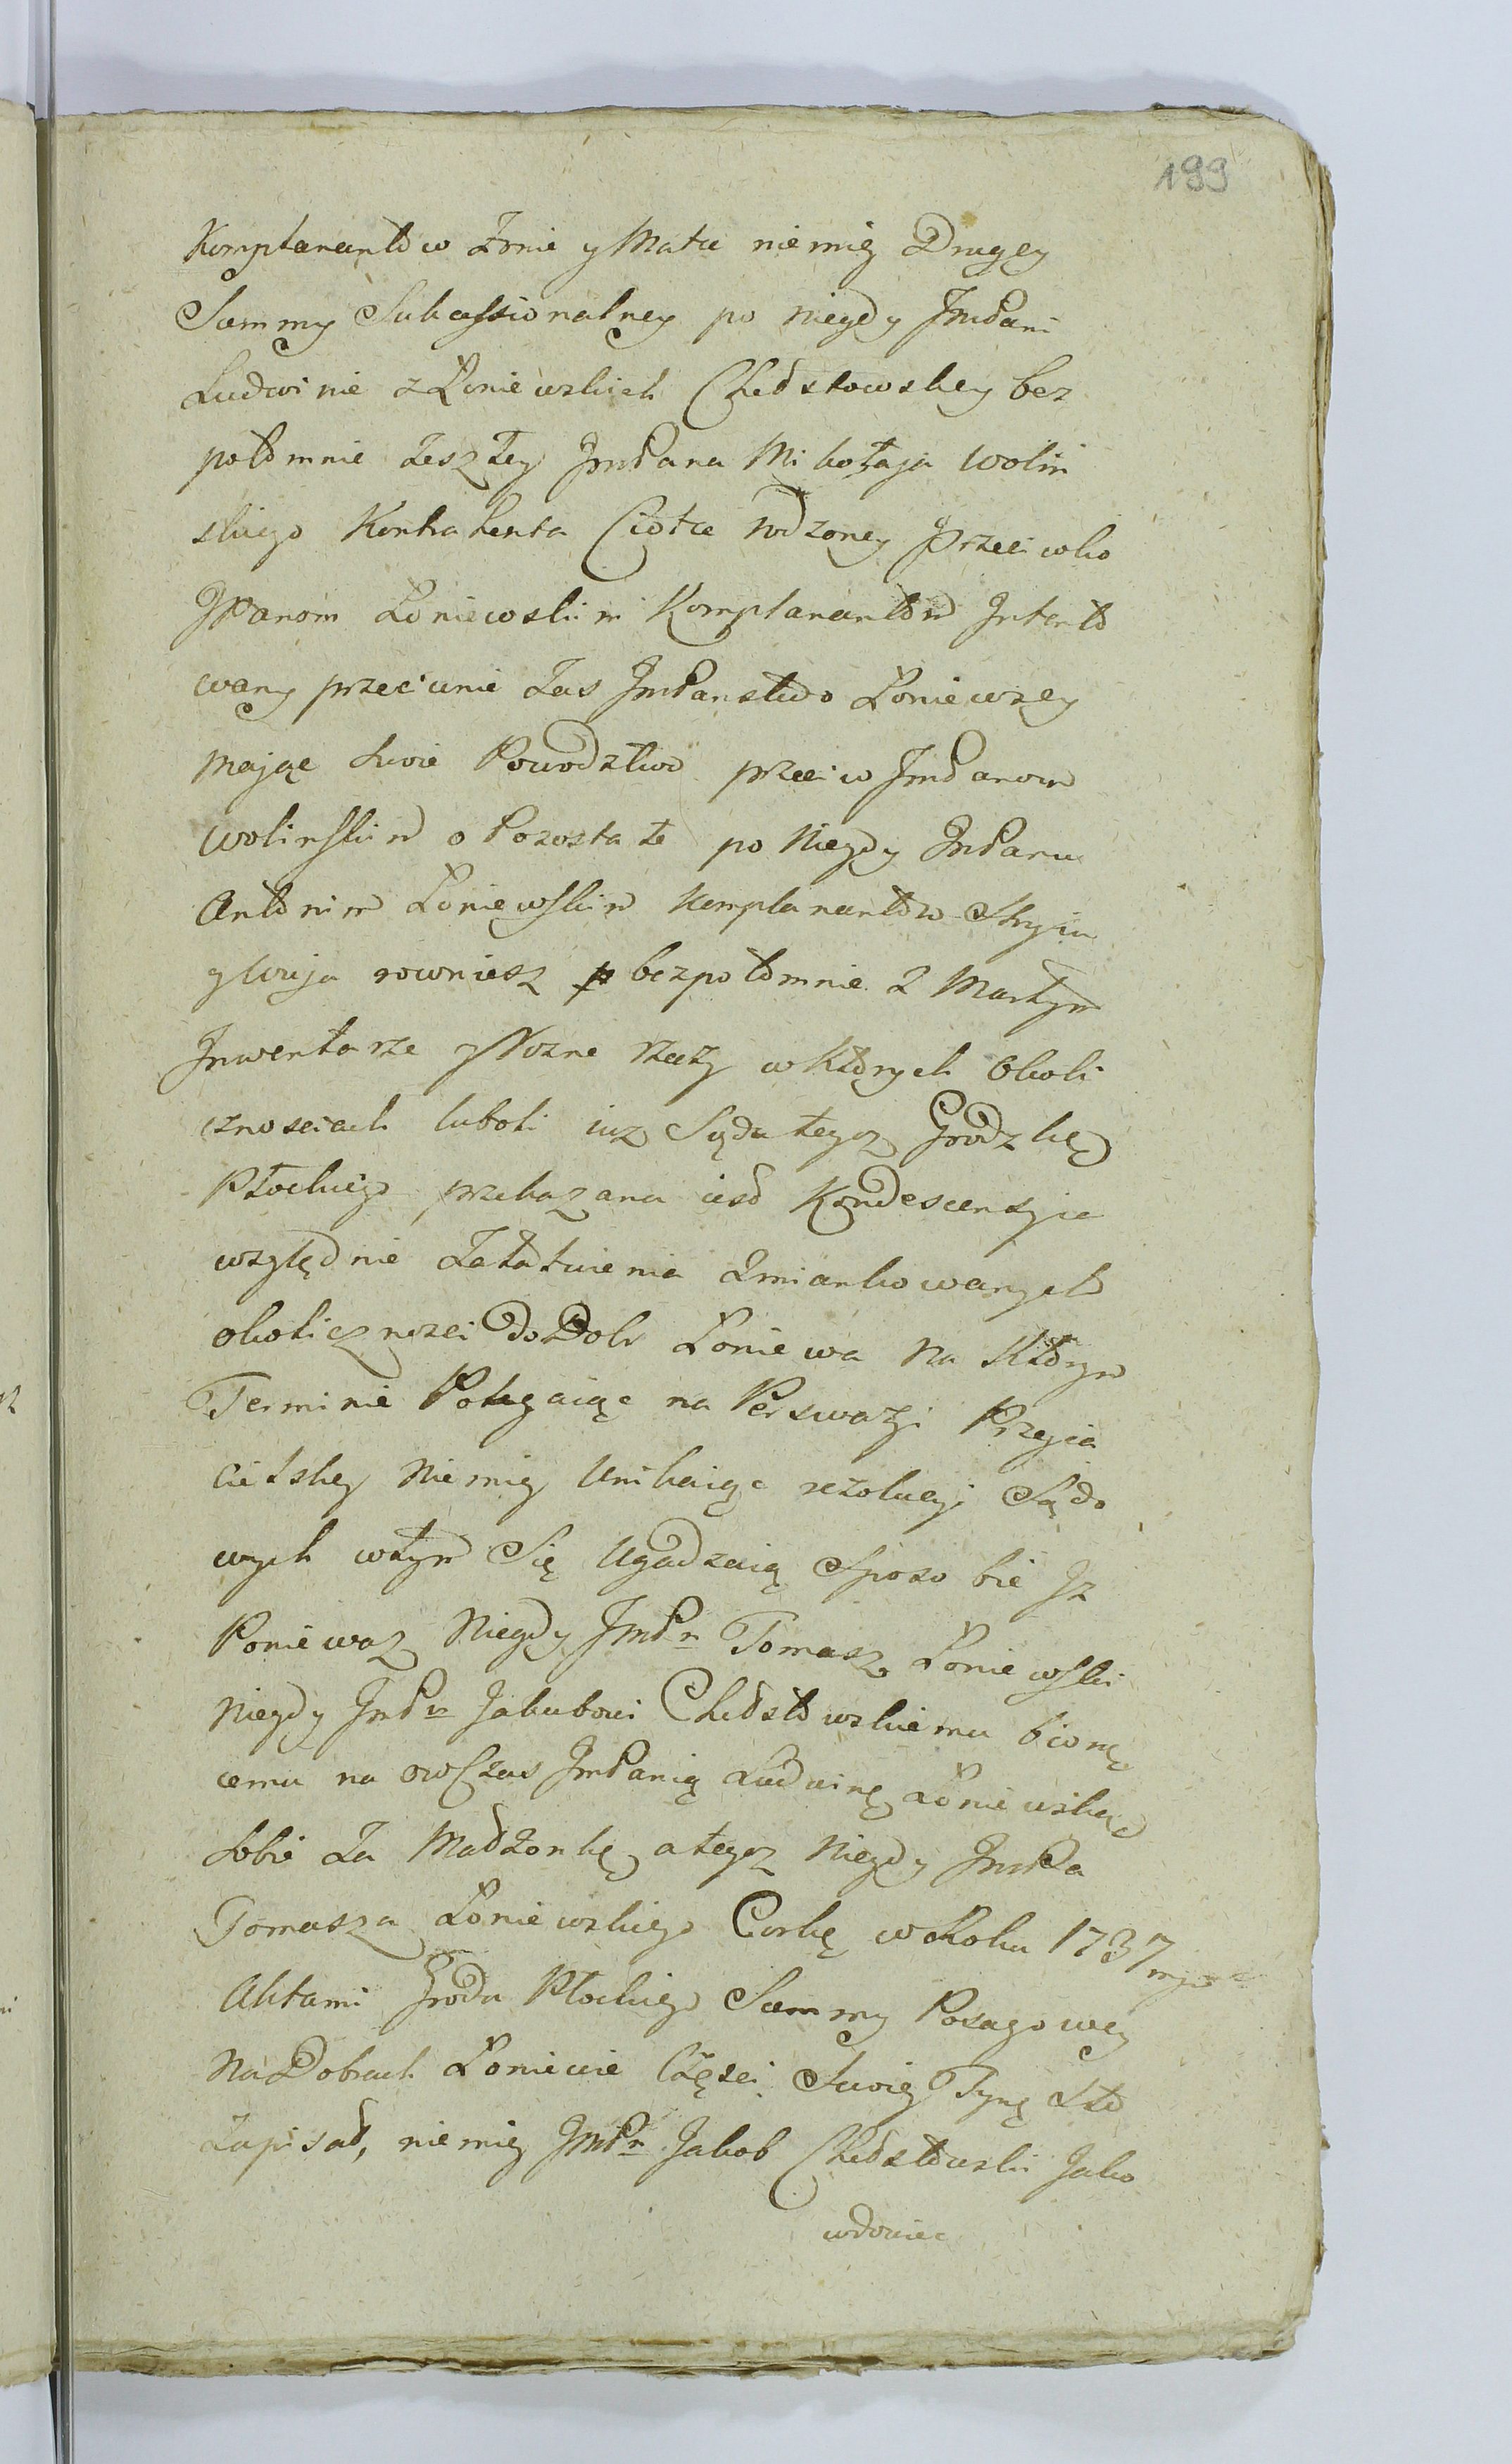 199
Komplanantow Zonie y Matce niemniey Drugey
Summy Sukcessionalney po niegdy JmPani
Ludwinie z Łoniewskich Chedstowskiey bez
potomnie zeszłey JmPana Mikołaja Wolin
skiego Kontrahenta Ciotce rodzoney przeciwko
JPanom Łoniewskim Komplanantom Intento
wany przeciwnie zas JmPanstwo Łoniewscy
mając swoie Powodztwo przeciw JmPanom
Wolinskim o Pozostałe po Niegdy JmPanu
Antonim Łoniewskim Komplanantow Stryiu
y Wuja rowniesz bezpotomnie zmarłym
Inwentarze y Rozne rzeczy w ktorych Okoli
cznosciach lubo iuz Sądu tegosz Grodzkę
Płockiego przekazana iest Kondescensyia
względnie załatwienia zmiankowanych
okolicznosci do Dobr Łoniewa na Ktorym
Terminie Polegaiąc na Perswazyi Przyia
cielskiey niemniey Unikaiąc rezolucyi Sądo
wych w tym się Ugadzaią Sposobie Jz
Poniewasz Niegdy JmPn Tomasz Łoniewski
Niegdy JmPu Jakubowi Chedstowskiemu biorą
cemu na owczas JmPanią Ludwinę Łoniewską
sobie za Madzonkę a tegosz Niegdy JmPa
Tomasza Łoniewskiego Corkę w Roku 1737
Aktami Grodu Płockiego Summy Posagowey
Na Dobrach Łoniewie Części Swoiey Tynę Sto
Zapisał, niemniey JmPn Jakob Chedstowski Jako
wdowiec